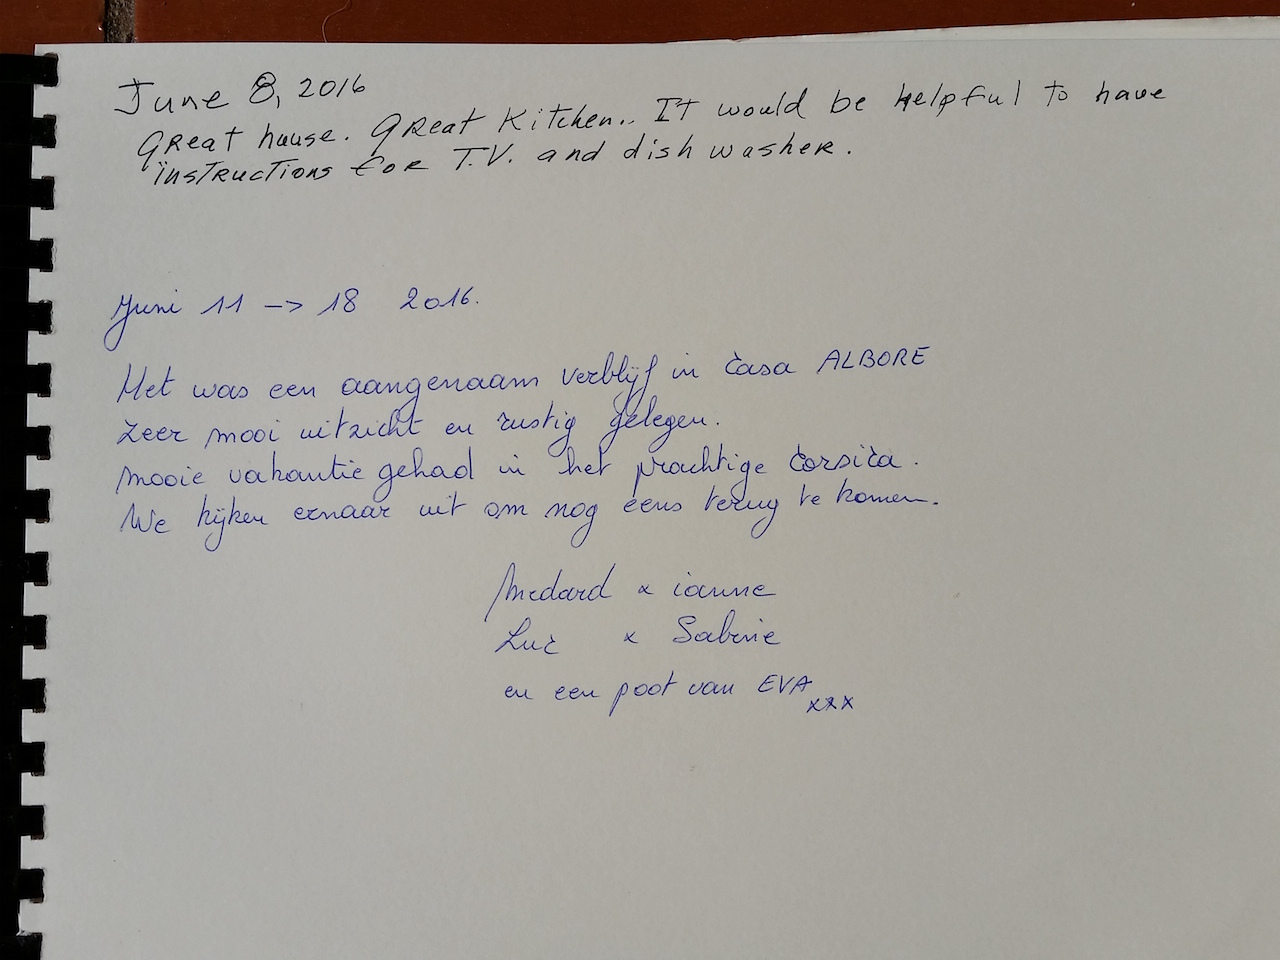 June 8, 2016
Great house. Great Kitchen.. It would be helpful to have
instructions for T.V. and dish washer.
Juni 11 -> 18 2016.
Het was een aangenaam verblijf in Casa ALBORE
Zeer mooi uitzicht en rustig gelegen.
Mooie vakantie gehad in het prachtige Corsica.
We kijken ernaar uit om nog eens terug te komen.
Medard x
Luc x Sabine
en een poot van EVA
xxx